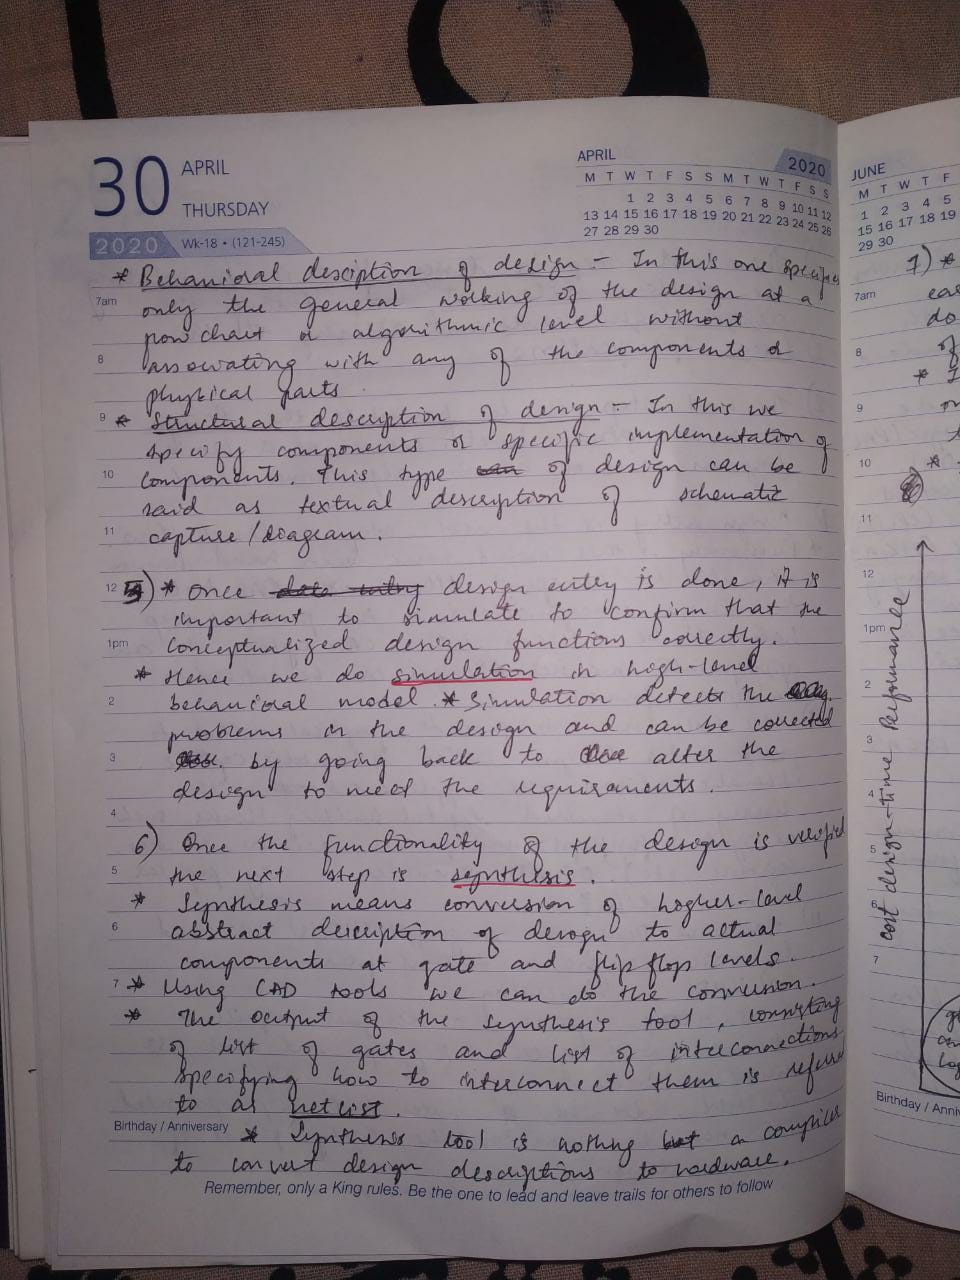 30
APRIL
THURSDAY
2020
Wk-18 • (121-245)
APRIL
2020
M T W T F S S M T W T F S S
1 2 3 4 5 6 7 8 9 10 11 12
13 14 15 16 17 18 19 20 21 22 23 24 25 26
27 28 29 30
* Behavioral desciption of design - In this one specifies
7am only the general working of the design at a
flow chart or algorithmic level without
8 associating with any of the components or
physical parts
9 * Structural description of design - In this we
specify components or specific implementation of
10 components. This type of design can be
said as textual description of schematic
11 capture / diagram.
12 5) * Once data entry design entry is done, it is
important to simulate to confirm that the
1pm conceptualized design functions correctly.
* Hence we do simulation in high-level
2 behavioral model. * Simulation detects the
problems in the design and can be corrected
3 by going back to alter the
design to meet the requirements.
4
6) Once the functionality of the design is verified
5 the next step is synthesis.
* Synthesis means conversion of higher-level
6 abstract description of design to actual
components at gate and flip flop levels.
7 * Using CAD tools we can do the conversion.
* The output of the synthesis tool, consisting
of list of gates and list of interconnections
specifying how to interconnect them is referred
to as netlist.
Birthday / Anniversary * Synthesis tool is nothing but a compiler
to convert design descriptions to hardware.
Remember, only a King rules. Be the one to lead and leave trails for others to follow
JUNE
M T W T F
1 2 3 4 5
15 16 17 18 19
29 30
7) *
7am
do
8 of
*
9
10 *
11
12
1pm
2
3
4
5
6
7
cost design-time Performance
Birthday / Anni